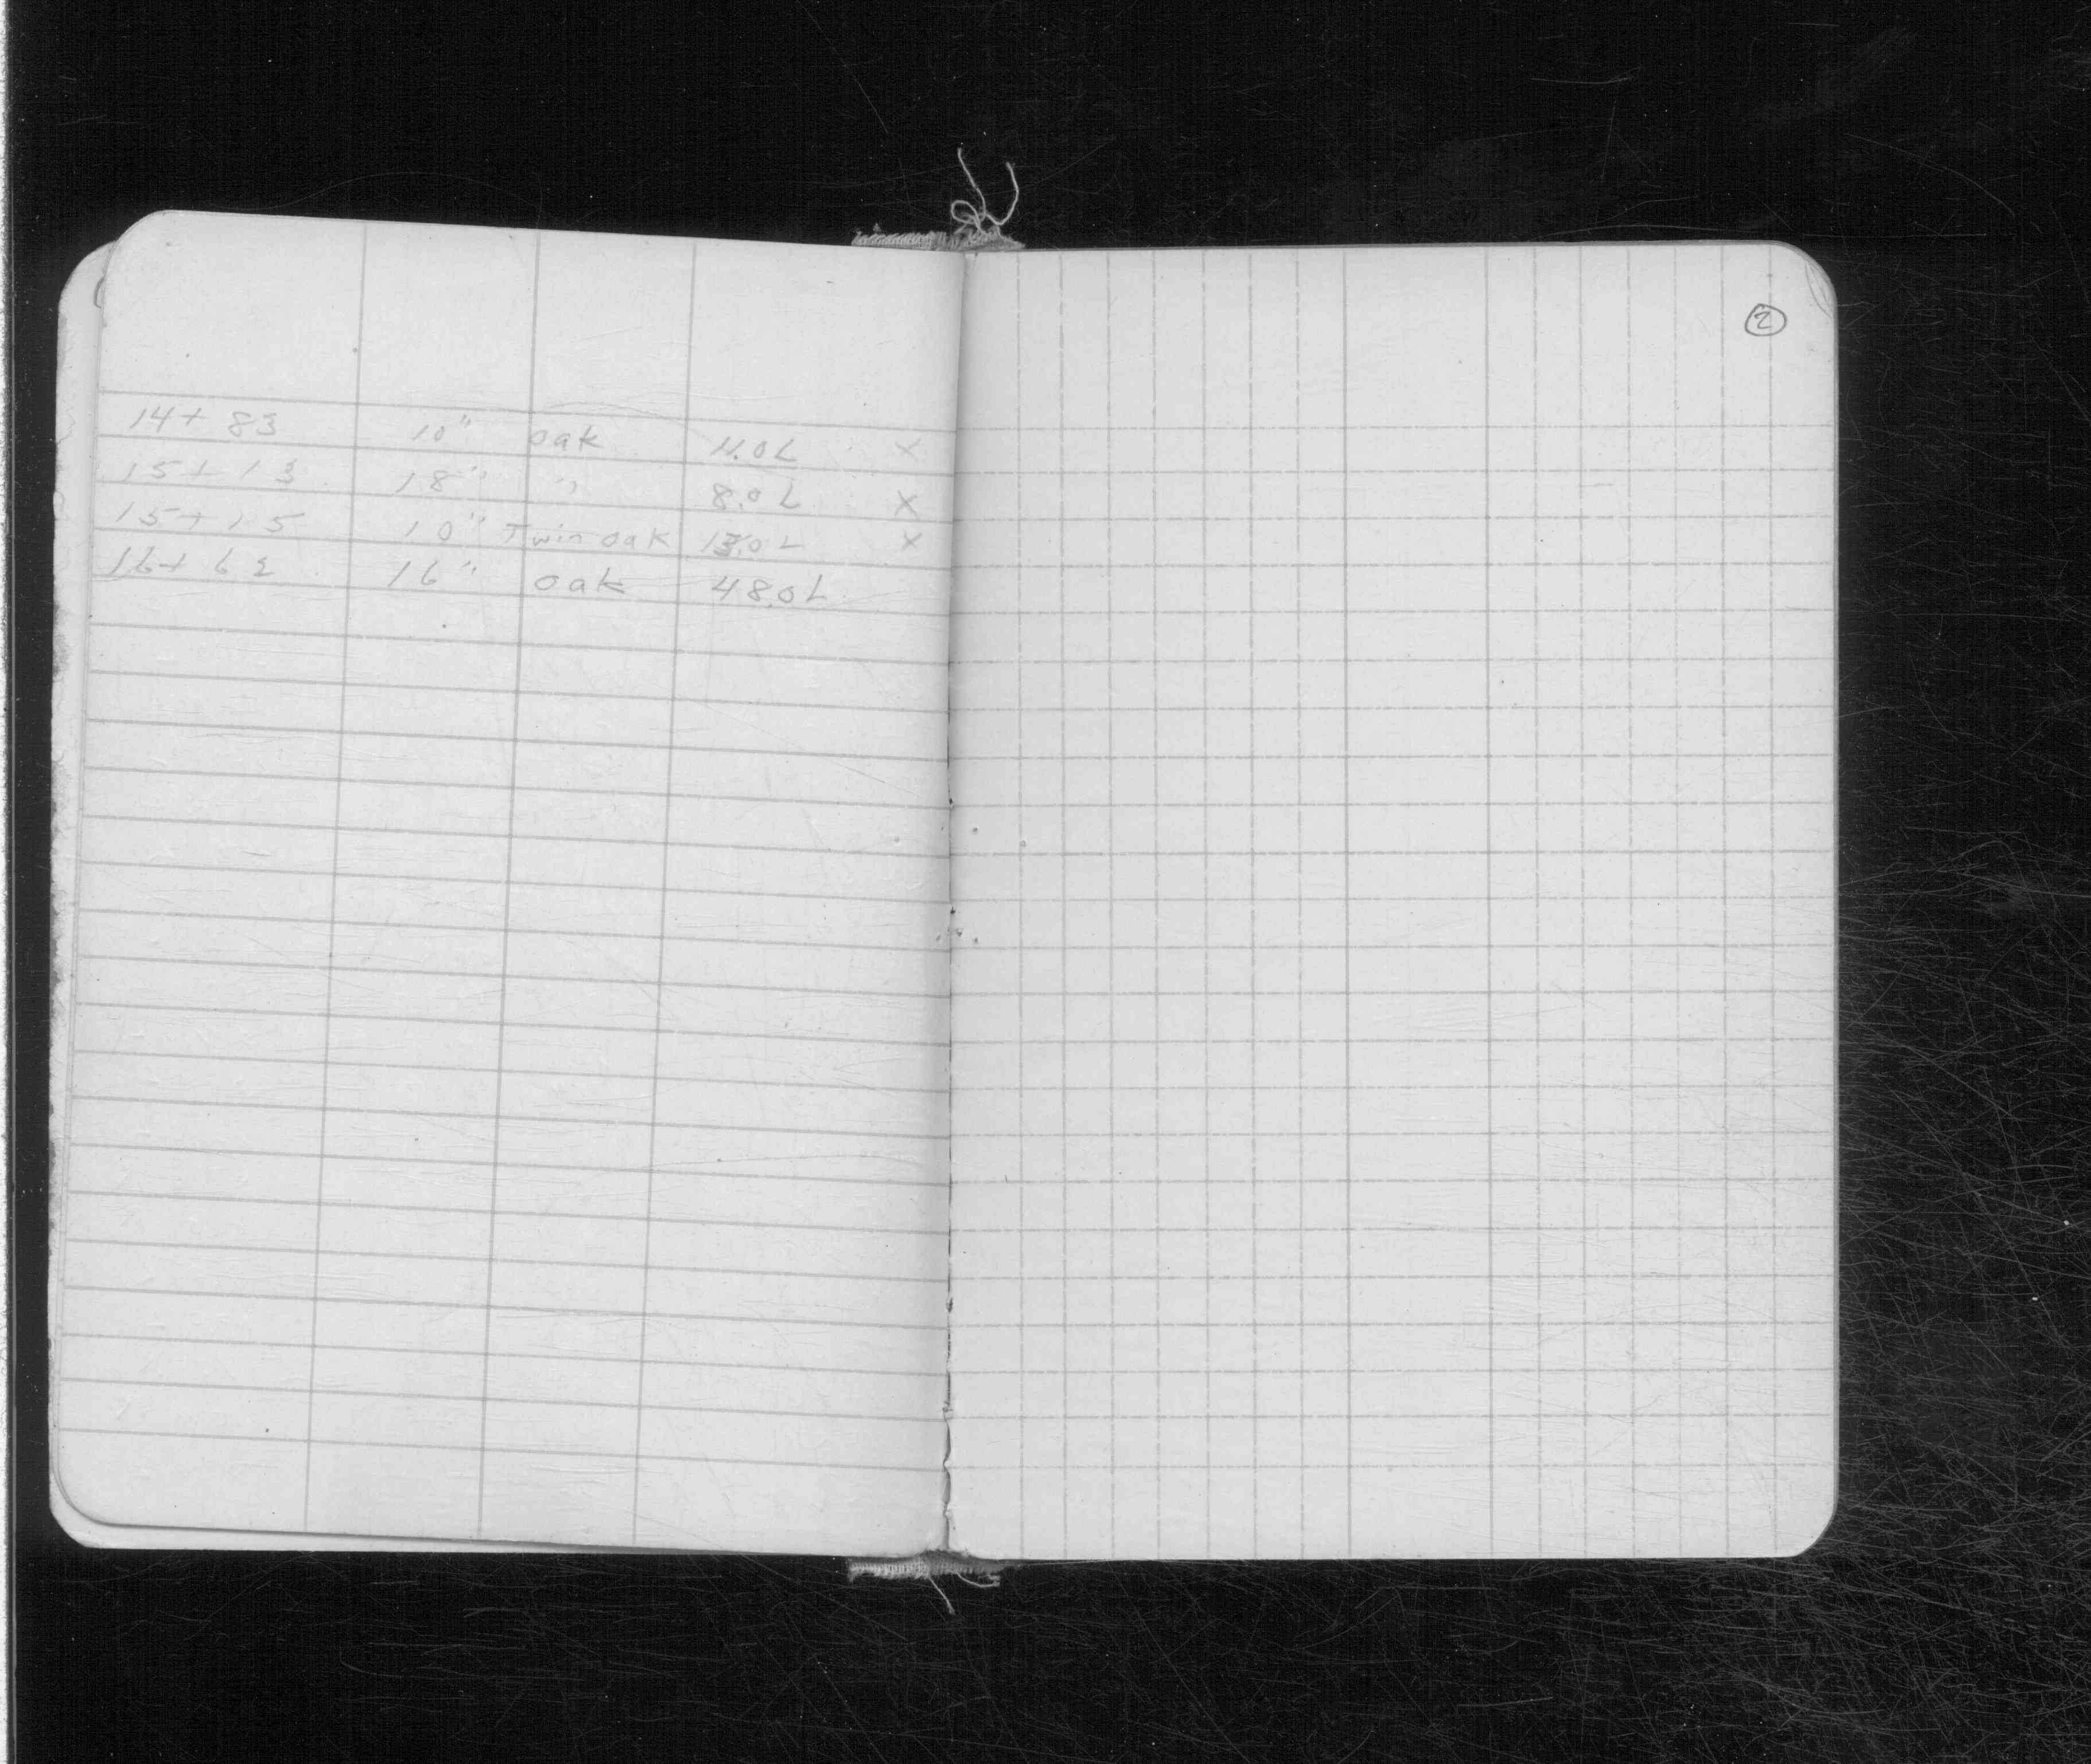 14+83 10" oak 11.0L X
15+13 18" " 8.0L X
15+15 10" Twin oak 13.0L X
16+62 16" oak 48.0L
2